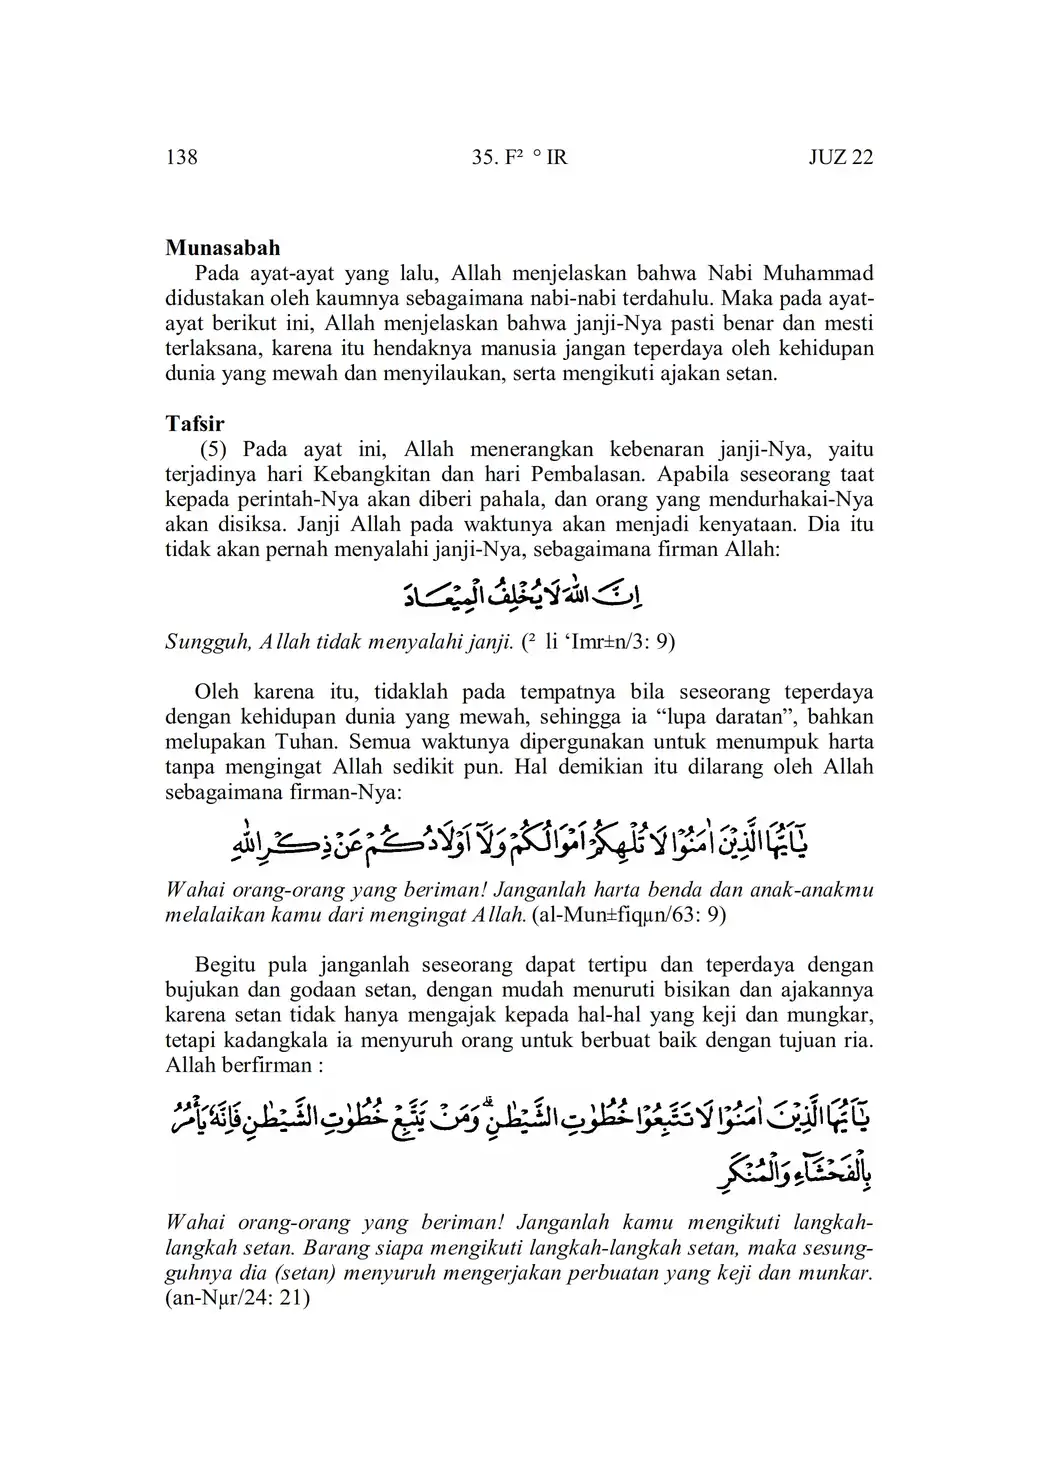 138 35. F² ° IR JUZ 22
Munasabah
Pada ayat-ayat yang lalu, Allah menjelaskan bahwa Nabi Muhammad
didustakan oleh kaumnya sebagaimana nabi-nabi terdahulu. Maka pada ayat-
ayat berikut ini, Allah menjelaskan bahwa janji-Nya pasti benar dan mesti
terlaksana, karena itu hendaknya manusia jangan teperdaya oleh kehidupan
dunia yang mewah dan menyilaukan, serta mengikuti ajakan setan.
Tafsir
(5) Pada ayat ini, Allah menerangkan kebenaran janji-Nya, yaitu
terjadinya hari Kebangkitan dan hari Pembalasan. Apabila seseorang taat
kepada perintah-Nya akan diberi pahala, dan orang yang mendurhakai-Nya
akan disiksa. Janji Allah pada waktunya akan menjadi kenyataan. Dia itu
tidak akan pernah menyalahi janji-Nya, sebagaimana firman Allah:
اِنَّ اللّٰهَ لَا يُخْلِفُ الْمِيْعَادَ
Sungguh, Allah tidak menyalahi janji. (² li ‘Imr±n/3: 9)
Oleh karena itu, tidaklah pada tempatnya bila seseorang teperdaya
dengan kehidupan dunia yang mewah, sehingga ia “lupa daratan”, bahkan
melupakan Tuhan. Semua waktunya dipergunakan untuk menumpuk harta
tanpa mengingat Allah sedikit pun. Hal demikian itu dilarang oleh Allah
sebagaimana firman-Nya:
يٰٓاَيُّهَا الَّذِيْنَ اٰمَنُوْا لَا تُلْهِكُمْ اَمْوَالُكُمْ وَلَآ اَوْلَادُكُمْ عَنْ ذِكْرِ اللّٰهِ
Wahai orang-orang yang beriman! Janganlah harta benda dan anak-anakmu
melalaikan kamu dari mengingat Allah. (al-Mun±fiqµn/63: 9)
Begitu pula janganlah seseorang dapat tertipu dan teperdaya dengan
bujukan dan godaan setan, dengan mudah menuruti bisikan dan ajakannya
karena setan tidak hanya mengajak kepada hal-hal yang keji dan mungkar,
tetapi kadangkala ia menyuruh orang untuk berbuat baik dengan tujuan ria.
Allah berfirman :
يٰٓاَيُّهَا الَّذِيْنَ اٰمَنُوْا لَا تَتَّبِعُوْا خُطُوٰتِ الشَّيْطٰنِۗ وَمَنْ يَّتَّبِعْ خُطُوٰتِ الشَّيْطٰنِ فَاِنَّهٗ يَأْمُرُ
بِالْفَحْشَاۤءِ وَالْمُنْكَرِ
Wahai orang-orang yang beriman! Janganlah kamu mengikuti langkah-
langkah setan. Barang siapa mengikuti langkah-langkah setan, maka sesung-
guhnya dia (setan) menyuruh mengerjakan perbuatan yang keji dan munkar.
(an-Nµr/24: 21)